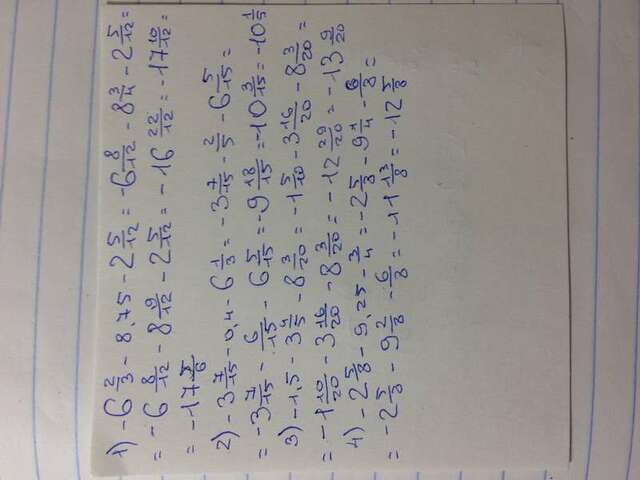 1) -6 2/3 - 8,75 - 2 5/12 = -6 8/12 - 8 3/4 - 2 5/12 =
= -6 8/12 - 8 9/12 - 2 5/12 = -16 22/12 = -17 10/12 =
= -17 5/6
2) -3 7/15 - 0,4 - 6 1/3 = -3 7/15 - 2/5 - 6 5/15 =
= -3 7/15 - 6/15 - 6 5/15 = -9 18/15 = -10 3/15 = -10 1/5
3) -1,5 - 3 4/5 - 8 3/20 = -1 5/10 - 3 16/20 - 8 3/20 =
= -1 10/20 - 3 16/20 - 8 3/20 = -12 29/20 = -13 9/20
4) -2 5/8 - 9,25 - 3/4 = -2 5/8 - 9 1/4 - 6/8 =
= -2 5/8 - 9 2/8 - 6/8 = -11 13/8 = -12 5/8